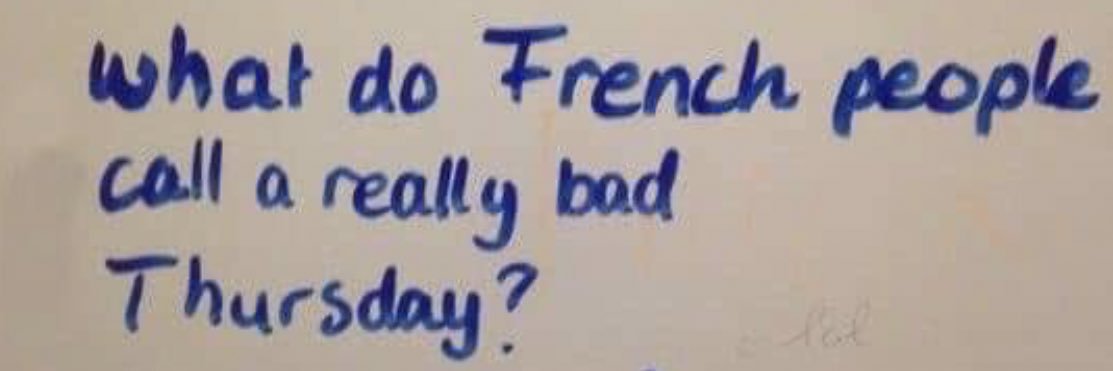 What do French people
call a really bad
Thursday?